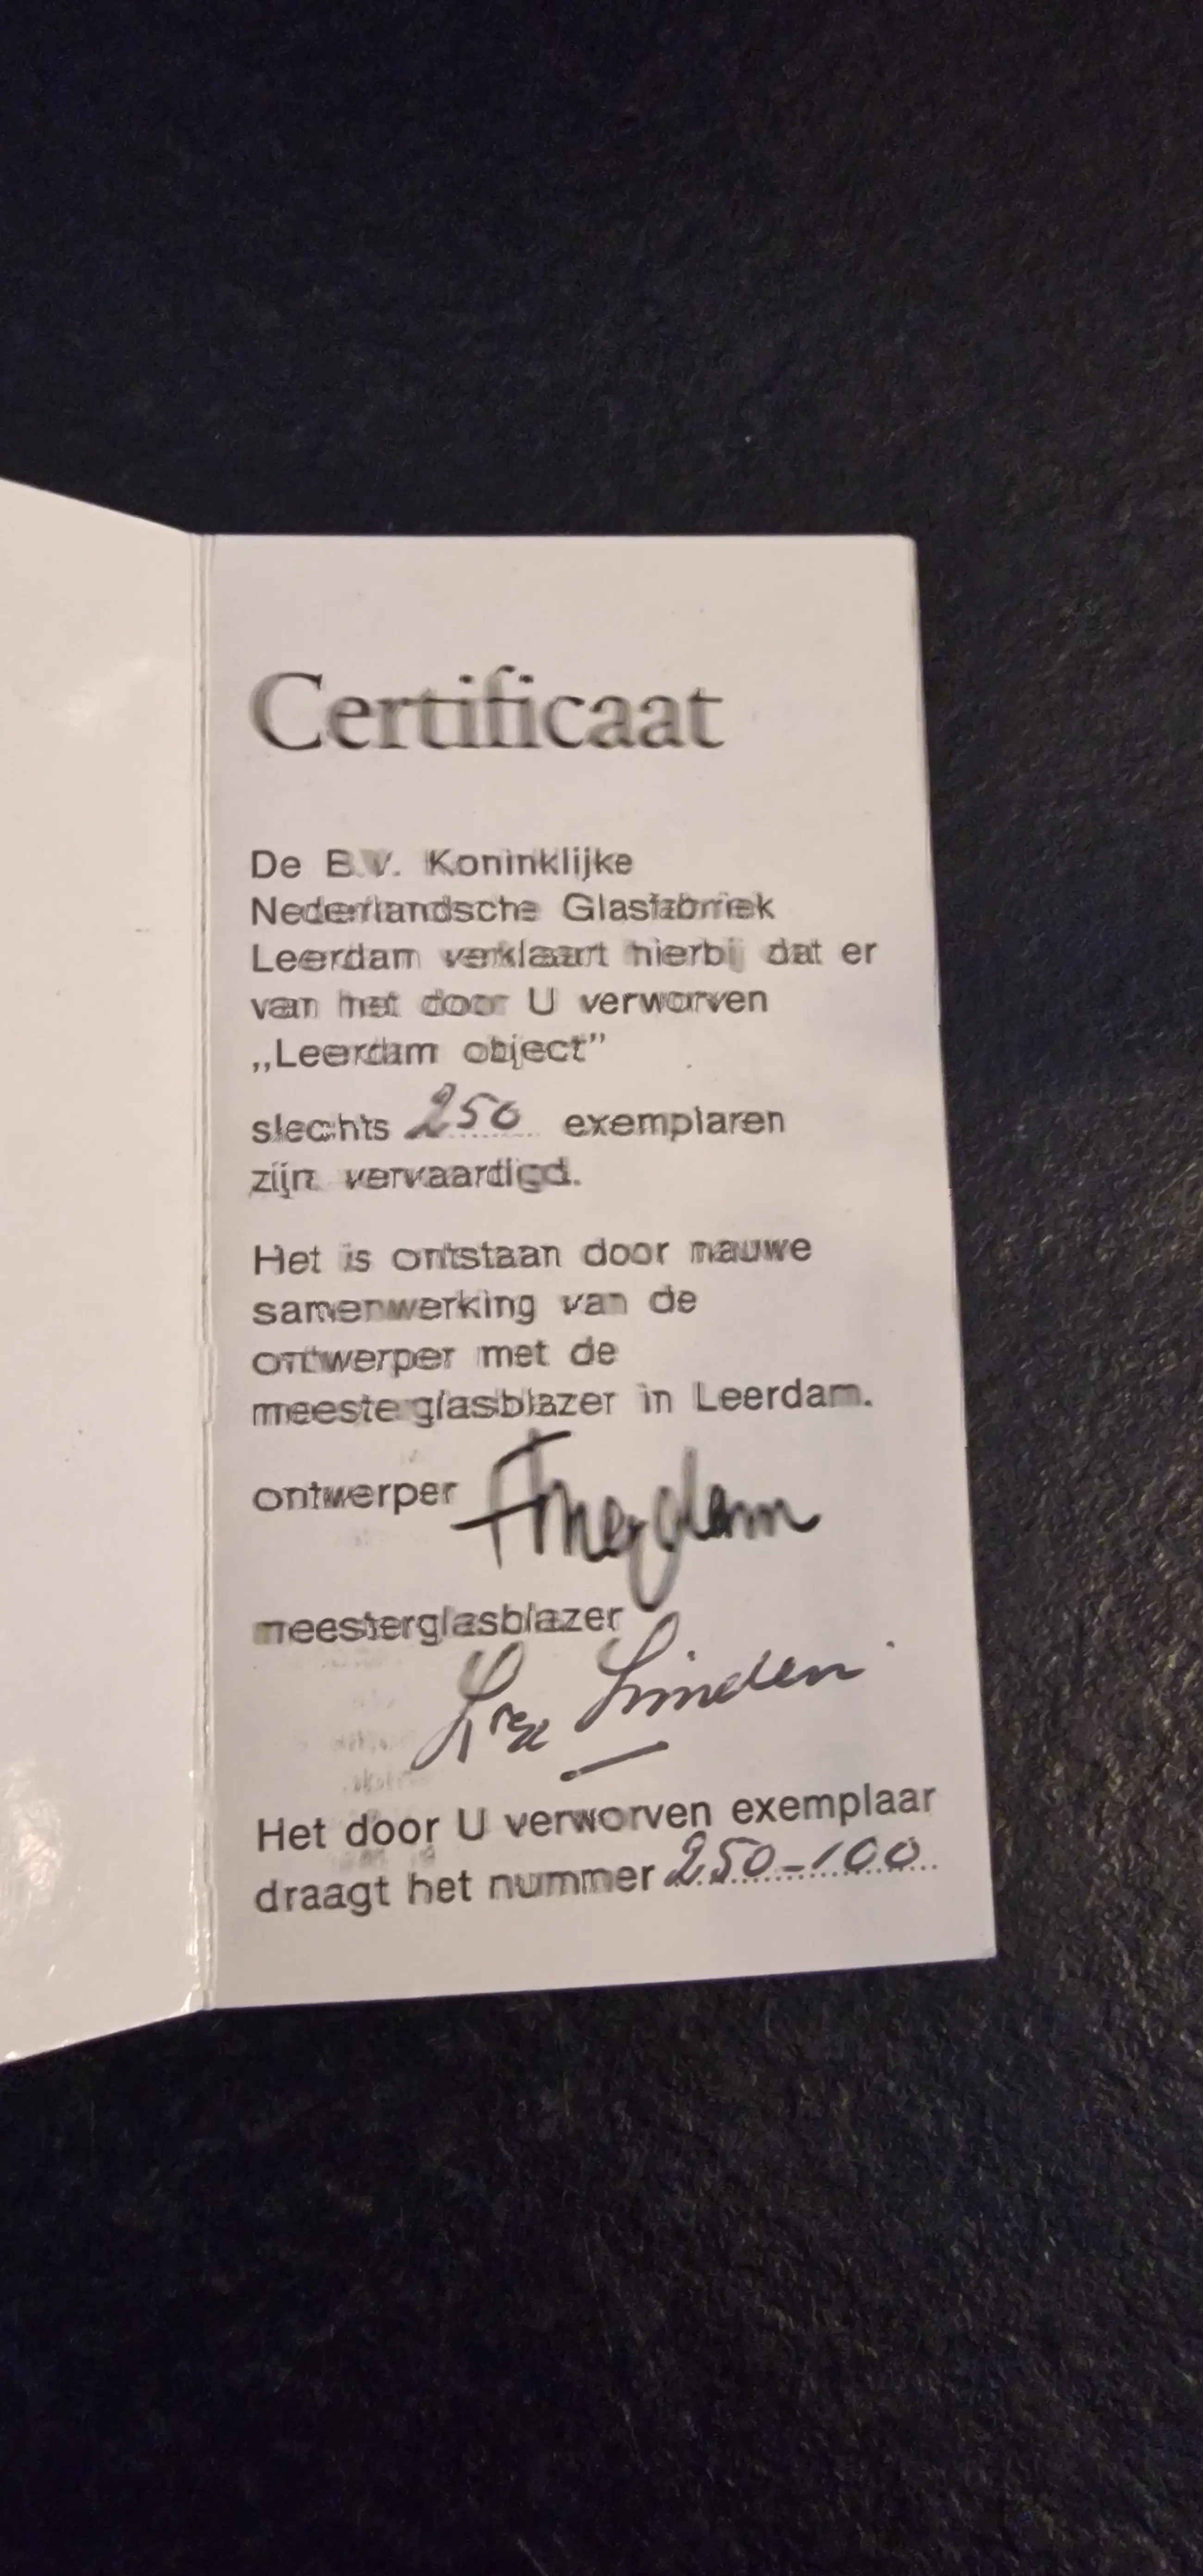 Certificaat
De B.V. Koninklijke
Nederlandsche Glasfabriek
Leerdam verklaart hierbij dat er
van het door U verworven
„Leerdam object”
slechts 250 exemplaren
zijn vervaardigd.
Het is ontstaan door nauwe
samenwerking van de
ontwerper met de
meesterglasblazer in Leerdam.
ontwerper
meesterglasblazer
Linden
Het door U verworven exemplaar
draagt het nummer 250-100